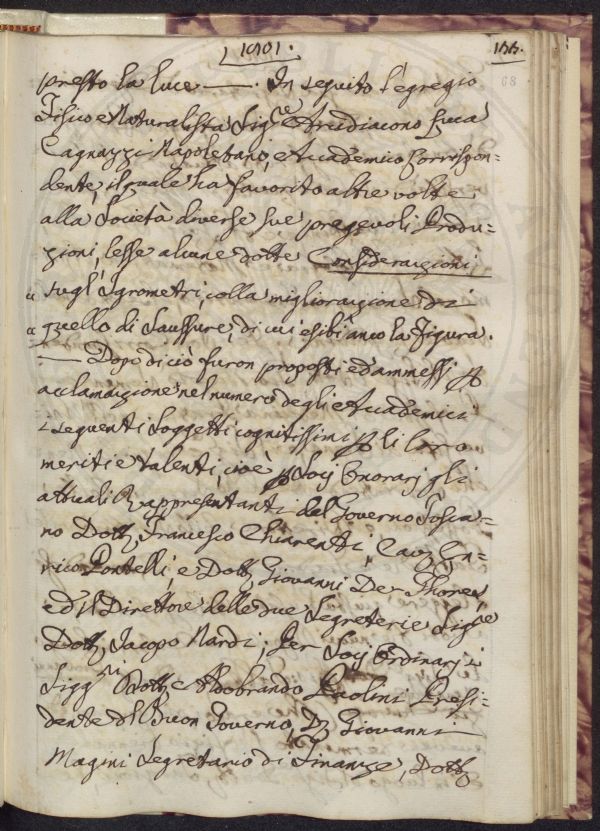 1801.
133.
68
presto la luce —. In seguito l'egregio
Fisico e Naturalista Sig.re Arcidiacono Luca
Cagnazzi Napoletano, e Accademico Corrispon=
dente, il quale ha favorito altre volte
alla Società diverse sue pregevoli Produ=
zioni, lesse alcune dotte Considerazioni
" sugl'Igrometri, colla migliorazione di
" quello di Saussure, di cui esibì anco la Figura.
— Dopo di ciò furon proposti ed ammessi p
acclamazione nel numero degli Accademici
i seguenti Soggetti cognitissimi p li loro
meriti e talenti, cioè p Socj Onorarj gli
attuali Rappresentanti del Governo Tosca=
no Dott. Francesco Chiarenti, Cav. En=
rico Pontelli, e Dott. Giovanni De Ghores
ed il Direttore delle due Segreterie Sig.re
Dott. Jacopo Nardi; Per Socj Ordinarj i
Sigg.ri Dott. Aldobrando Paolini Presi=
dente del Buon Governo, D. Giovanni
Magini Segretario di Finanze, Dott.